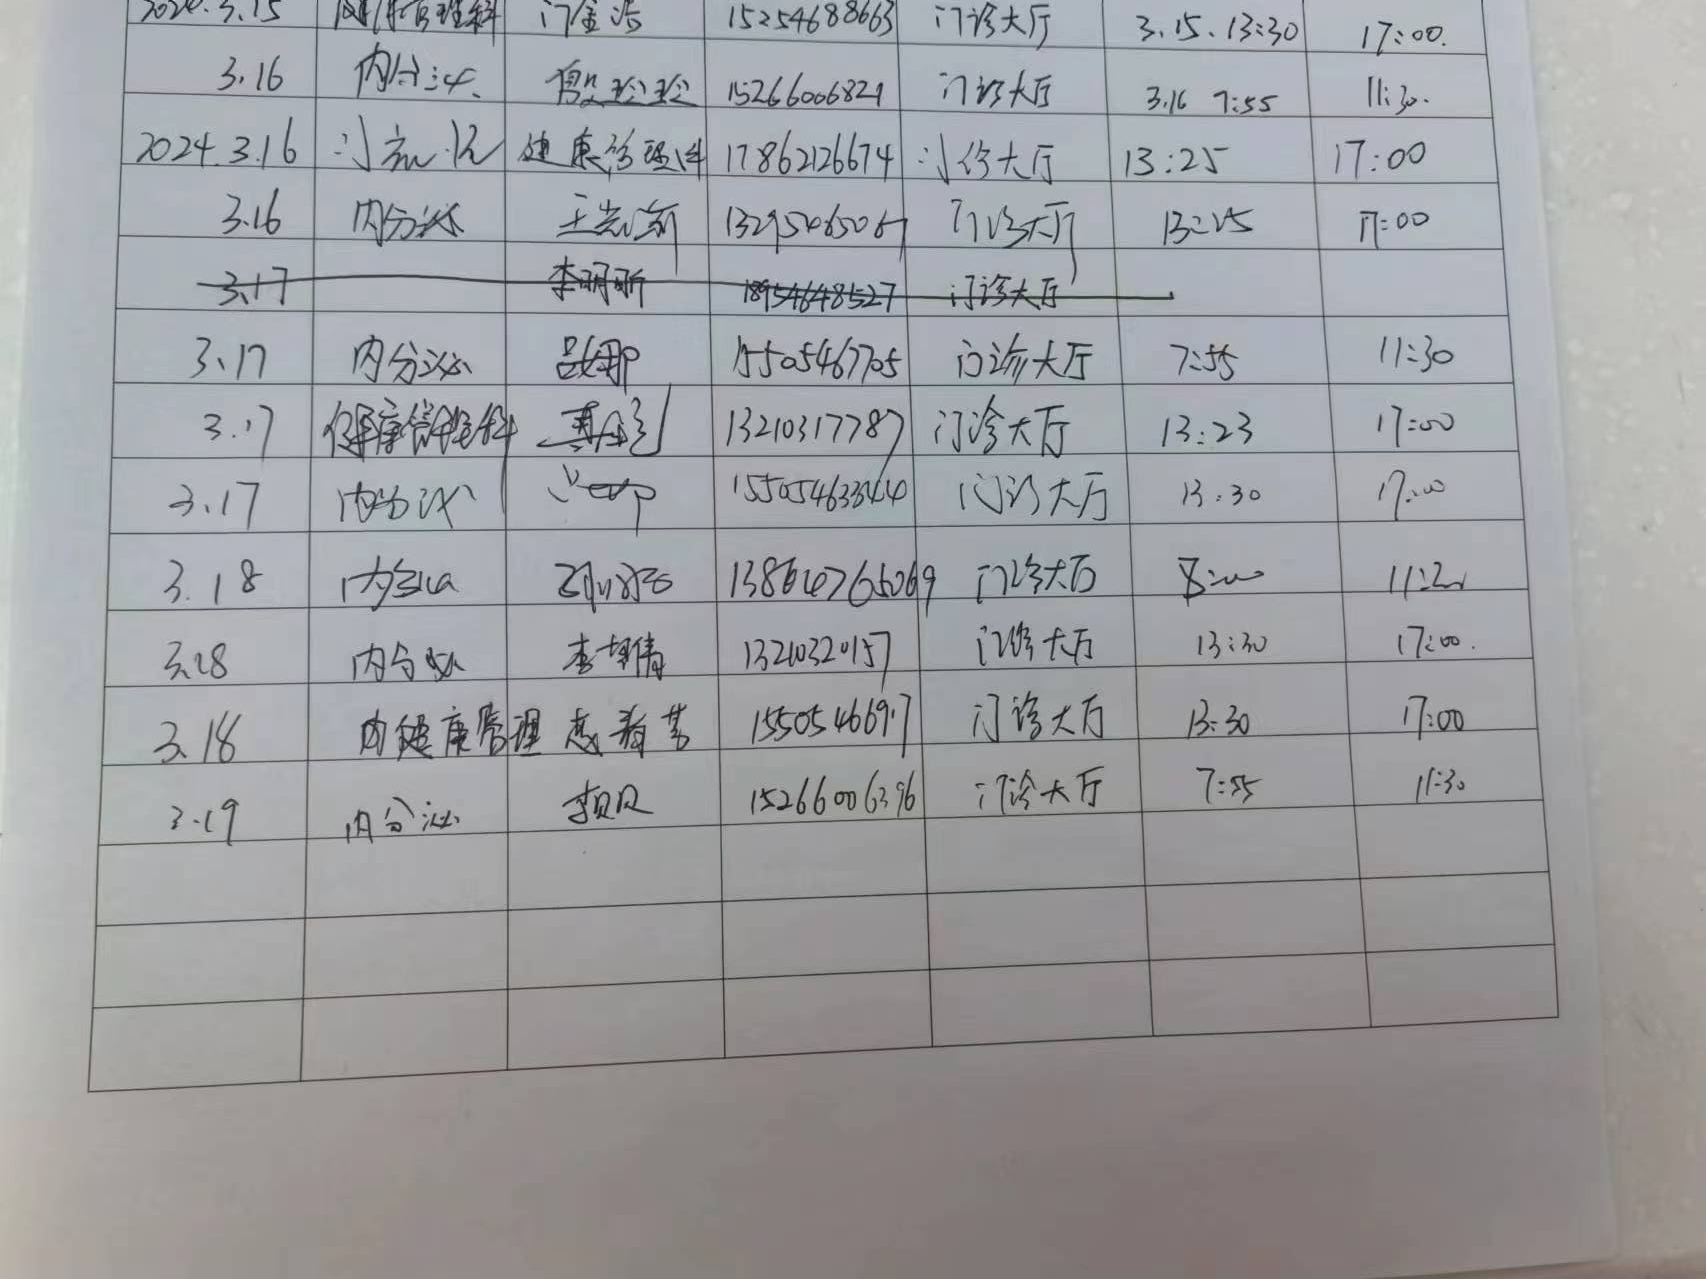 2024.3.15 健康管理科 门金浩 15254688663 门诊大厅 3.15.13:30 17:00.
3.16 内分泌 殷玲玲 15266006821 门诊大厅 3.16 7:55 11:30.
2024.3.16 健康管理科 17862126674 门诊大厅 13:25 17:00
3.16 内分泌 门诊大厅 13:25 17:00
3.17 李明昕 18954648527 门诊大厅
3.17 内分泌 吕娜 15505467705 门诊大厅 7:55 11:30
3.17 健康管理科 13210317787 门诊大厅 13:23 17:00
3.17 内分泌 门诊大厅 13:30 17:00
3.18 内分泌 门诊大厅 8:00
3.18 内分泌 李 倩 13210320157 门诊大厅 13:30 17:00.
3.18 内健康管理 15505466917 门诊大厅 13:30 17:00
3.19 内分泌 15266006396 门诊大厅 7:55 11:30